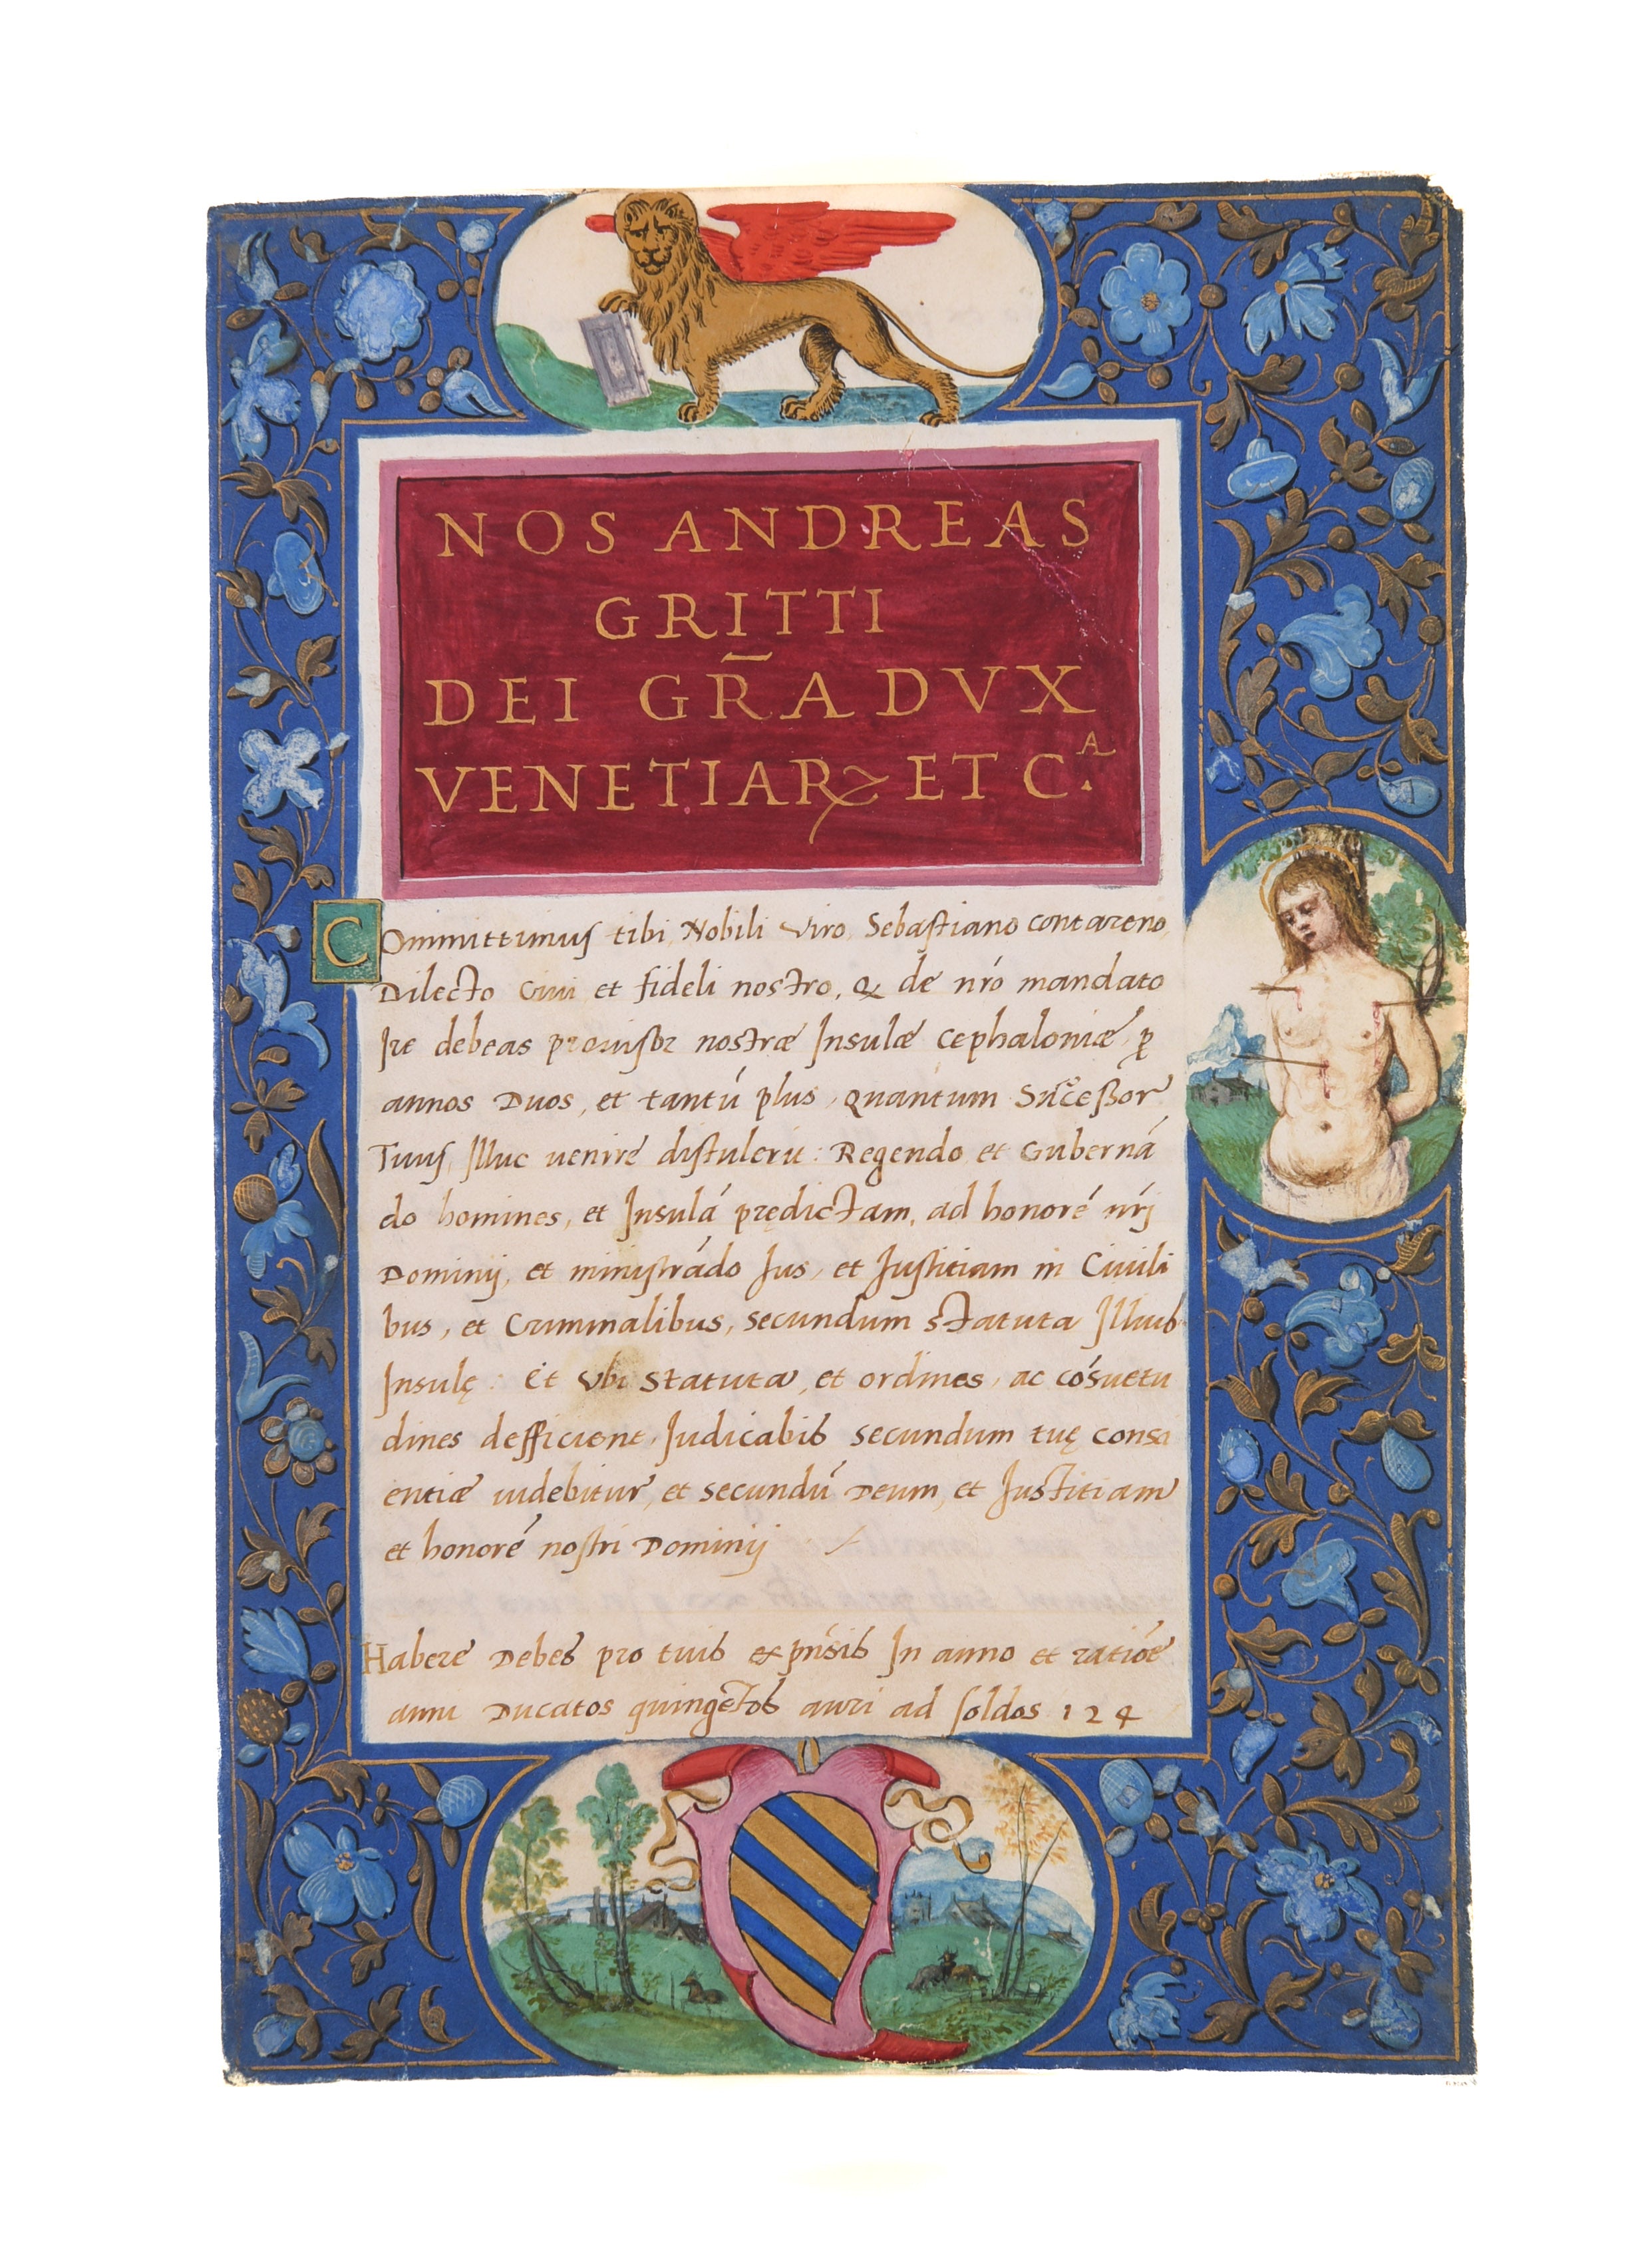 NOS ANDREAS
GRITTI
DEI GR̄A DVX
VENETIARꝝ ET C.ᴬ
Committimus tibi Nobili Viro Sebastiano contareno
Dilecto Ciui et fideli nostro, Qꝫ de nr̄o mandato
Ire debeas prouisor nostræ Insulæ Cephaloniæ ꝑ
annos Duos, et tantú plus, Quantum Successor
Tuus Illuc uenire distulerit: Regendo et Guberná
do homines, et Insulá prędictam, ad honoré nr̄j
Dominij, et ministrádo Jus, et Justitiam in Ciuili
bus, et Criminalibus, secundum statuta Illius
Insulę: Et Vbi Statuta, et ordines, ac cósuetu
dines defficient, Judicabis secundum tuę consci
entiæ uidebitur, et secundú Deum, et Justitiam
et honoré nostri Dominij
Habere Debes pro tuis expn̄sis In anno et ratióe
anni Ducatos quingētos auri ad soldos 124